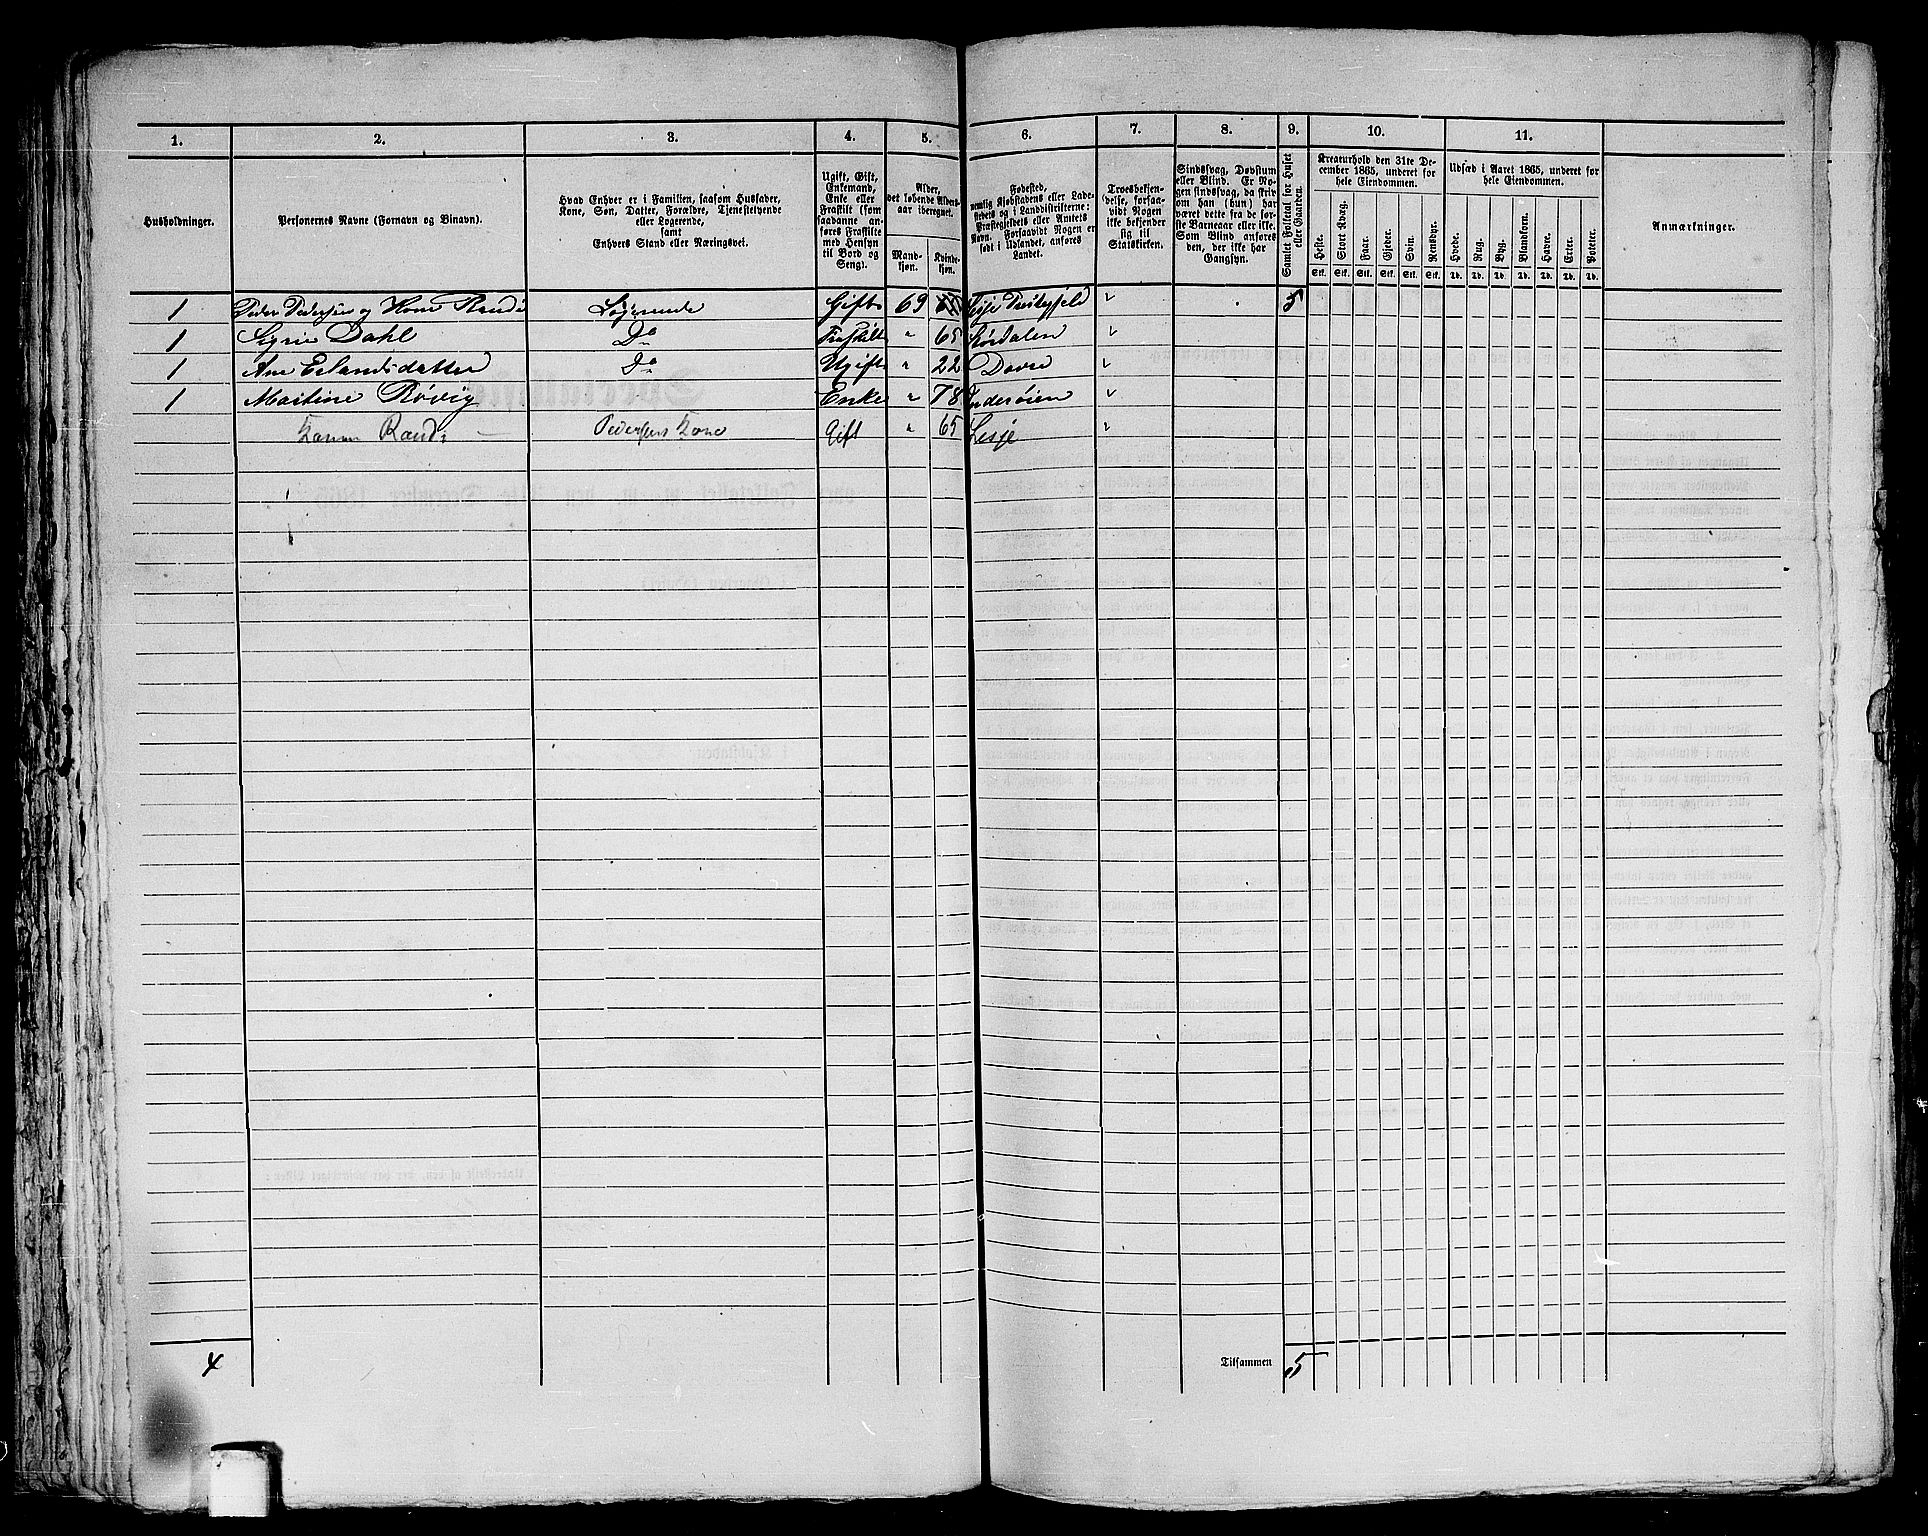 1. 2. 3. 4. 5. 6. 7. 8. 9. 10. 11.
Husholdninger.
Personernes Navne (Fornavn og Binavn).
Hvad Enhver er i Familien, saasom Husfader,
Kone, Søn, Datter, Forældre, Tjenestetyende
eller Logerende,
samt
Enhvers Stand eller Næringsvei.
Ugift, Gift,
Enkemand,
Enke eller
Fraskilt (som
saadanne anføres
Fraskilte
med Hensyn
til Bord og
Seng).
Alder,
det løbende Alders-
aar iberegnet.
Mand-
kjøn.
Kvinde-
kjøn.
Fødested,
nemlig Kjøbstadens eller Lade-
stedets og i Landdistrikterne:
Præstegjeldets eller Amtets
Navn. Forsaavidt Nogen er
født i Udlandet, anføres
Landet.
Troesbekjen-
delse, forsaa-
vidt Nogen
ikke bekjender
sig til
Statskirken.
Sindssvag, Døvstum
eller Blind. Er No-
gen sindssvag, da skri-
ves om han (hun) har
været dette fra de før-
ste Barneaar eller ikke.
Som Blind anføres
den, der ikke har
Gangsyn.
Samlet Folketal for Huset
eller Gaarden.
Kreaturhold den 31te De-
cember 1865, underet for
hele Eiendommen.
Heste. Stort Kvæg. Faar. Gjeder. Svin. Rensdyr.
Stk. Stk. Stk. Stk. Stk. Stk.
Udsæd i Aaret 1865, underet for
hele Eiendommen.
Hvede. Rug. Byg. Blandkorn. Havre. Erter. Poteter.
Td. Td. Td. Td. Td. Td. Td.
Anmærkninger.
1 Peder Pedersen og Kone Randi Logerende Gift 69 Lesje 5
1 Sigrie Dahl Do Fraskilt " 65 Størdalen "
1 Ane Erlandsdatter Do Ugift " 22 Dovre "
1 Martine Røvig Enke " 78 Inderøien "
Randi Pedersens Kone Gift " 65 Lesje "
4 Tilsammen 5